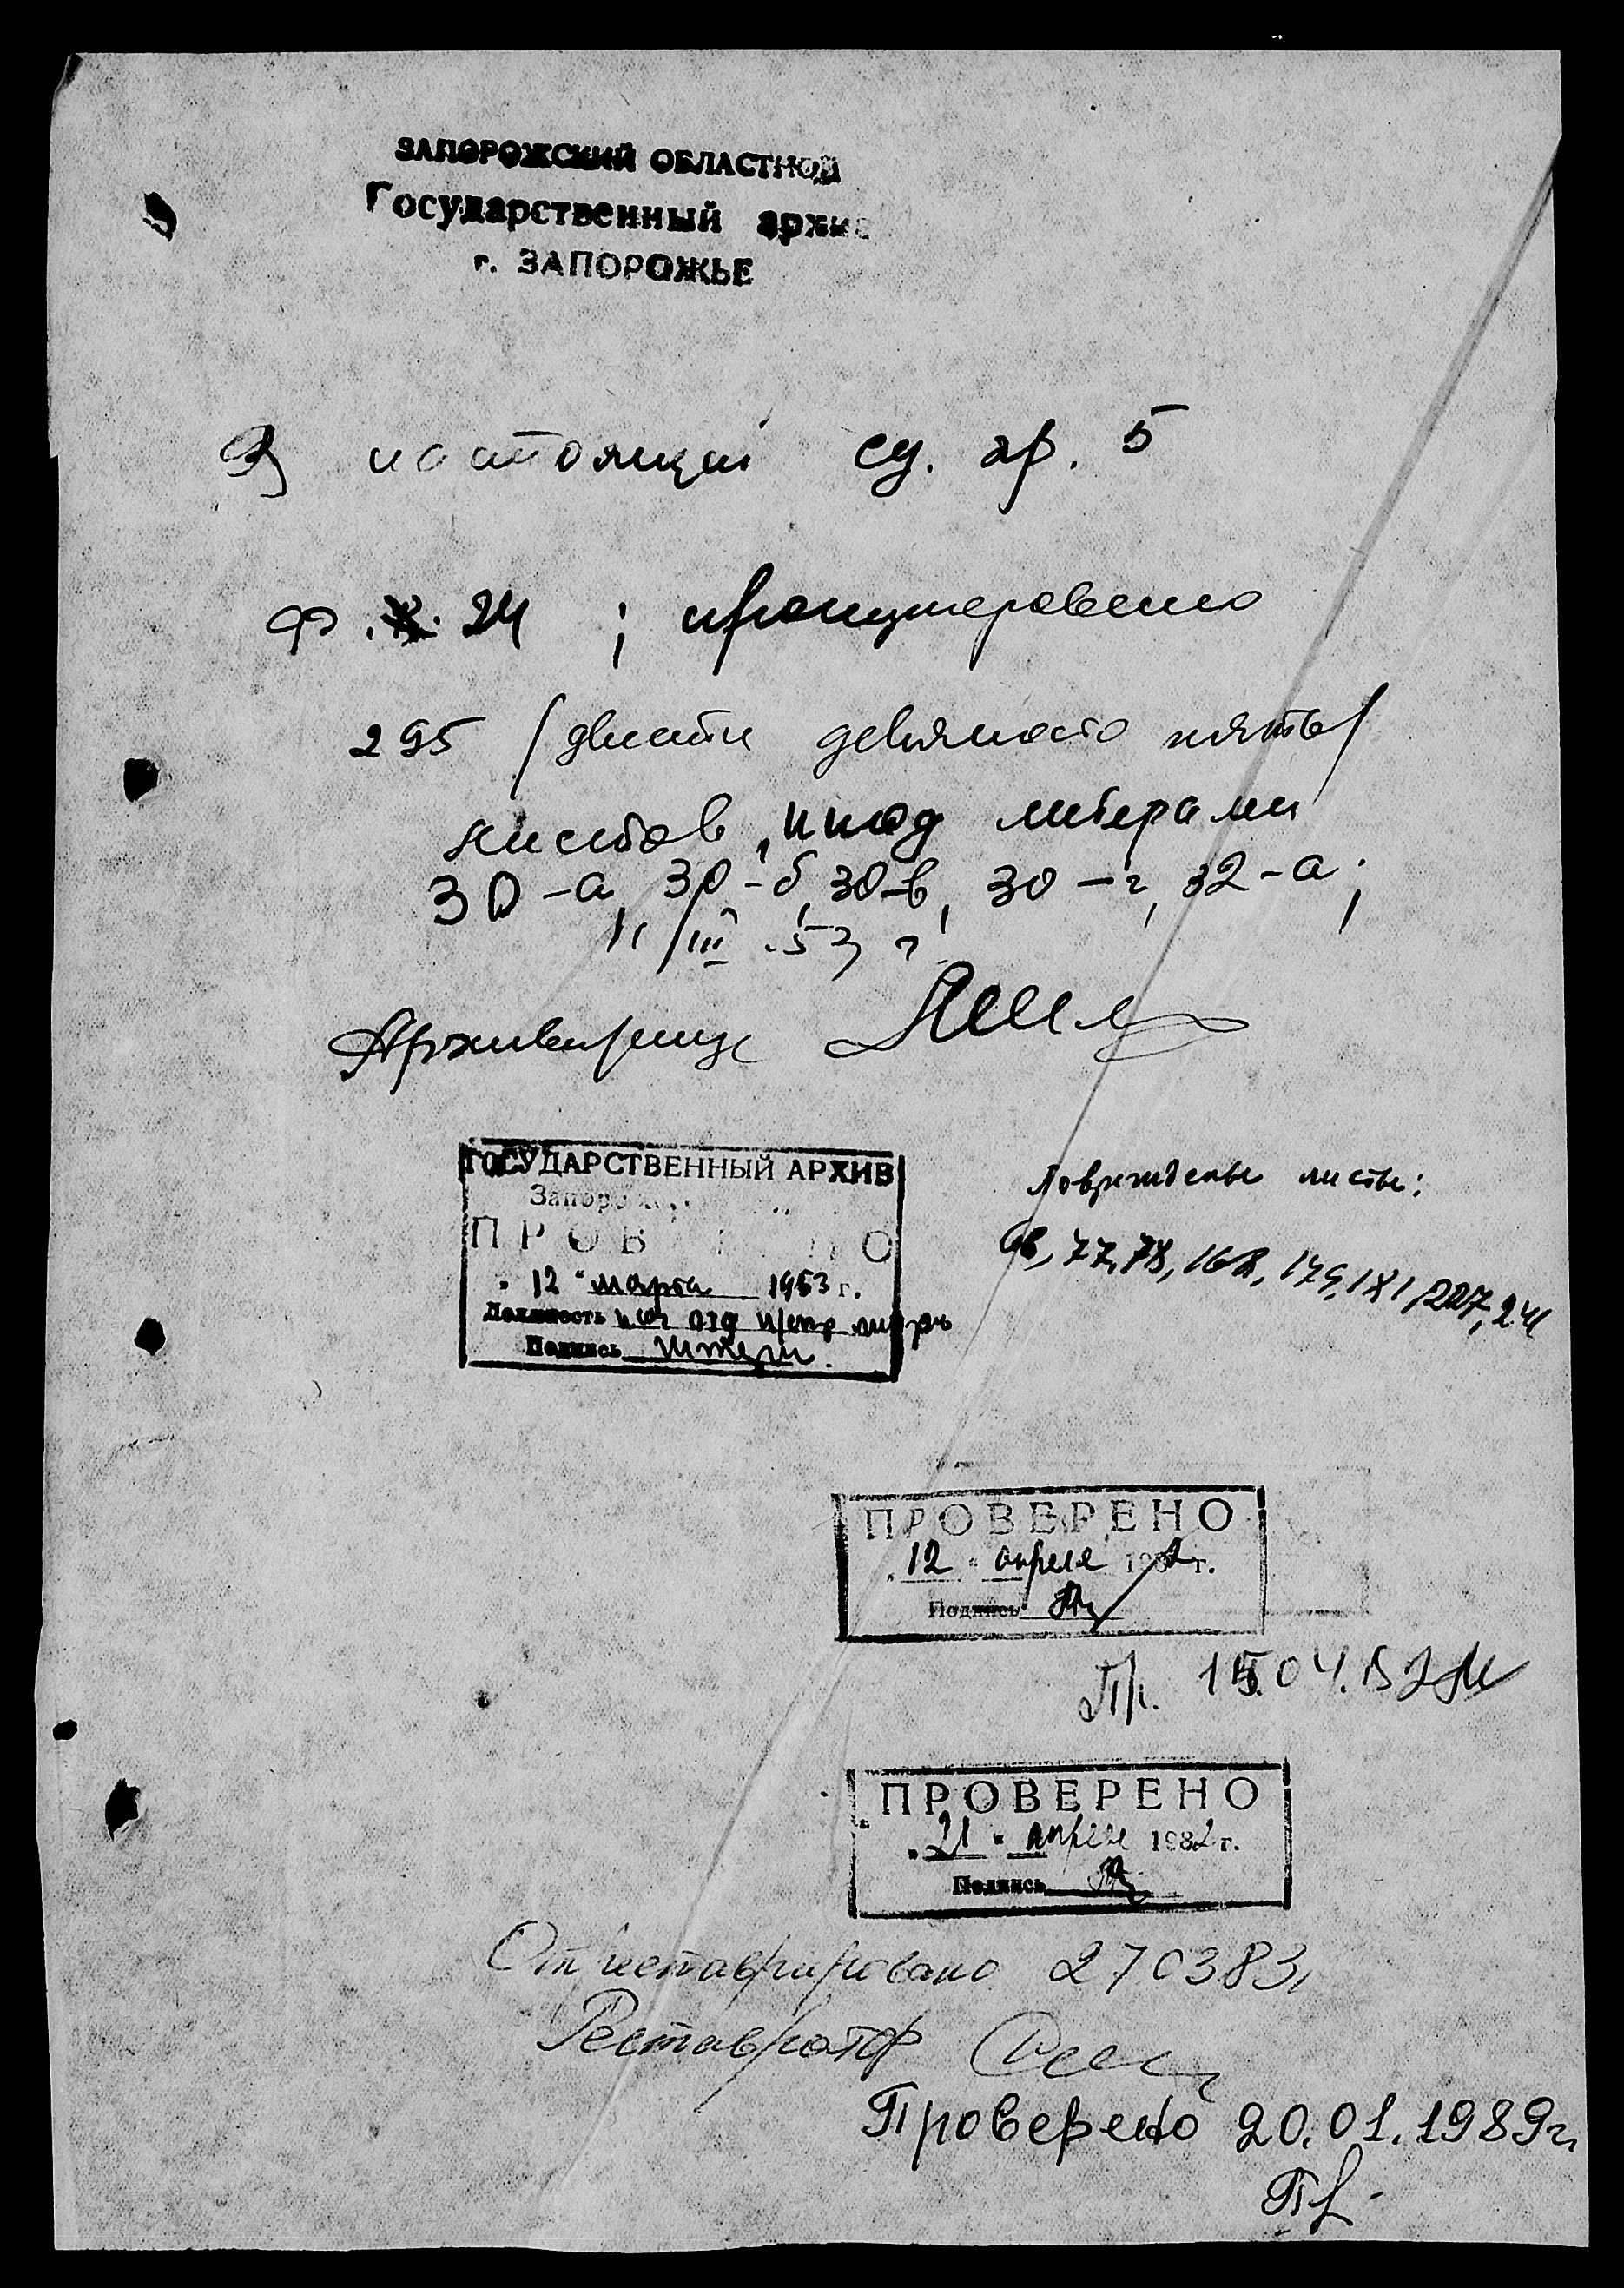 ЗАПОРОЖСКИЙ ОБЛАСТНОЙ
Государственный архив
г. ЗАПОРОЖЬЕ
В настоящей ед. хр. 5
Ф. 24 ; пронумеровано
295 /двести девяносто пять/
листов, и под литерами
30-а, 30-б, 30-в, 30-г, 32-а;
11/III.53 г.
Архивариус
ГОСУДАРСТВЕННЫЙ АРХИВ
ПРОВ О
"12" марта 1953 г.
Должность
Подпись
Повреждены листы:
77, 78, 168, 179, 181, 227, 241
ПРОВЕРЕНО
"12" апреля 1982 г.
Подпись
Пр. 15.04.
ПРОВЕРЕНО
"21" апреля 1982 г.
Подпись
Отреставрировано 270383,
Реставратор
Проверено 20.01.1989г.